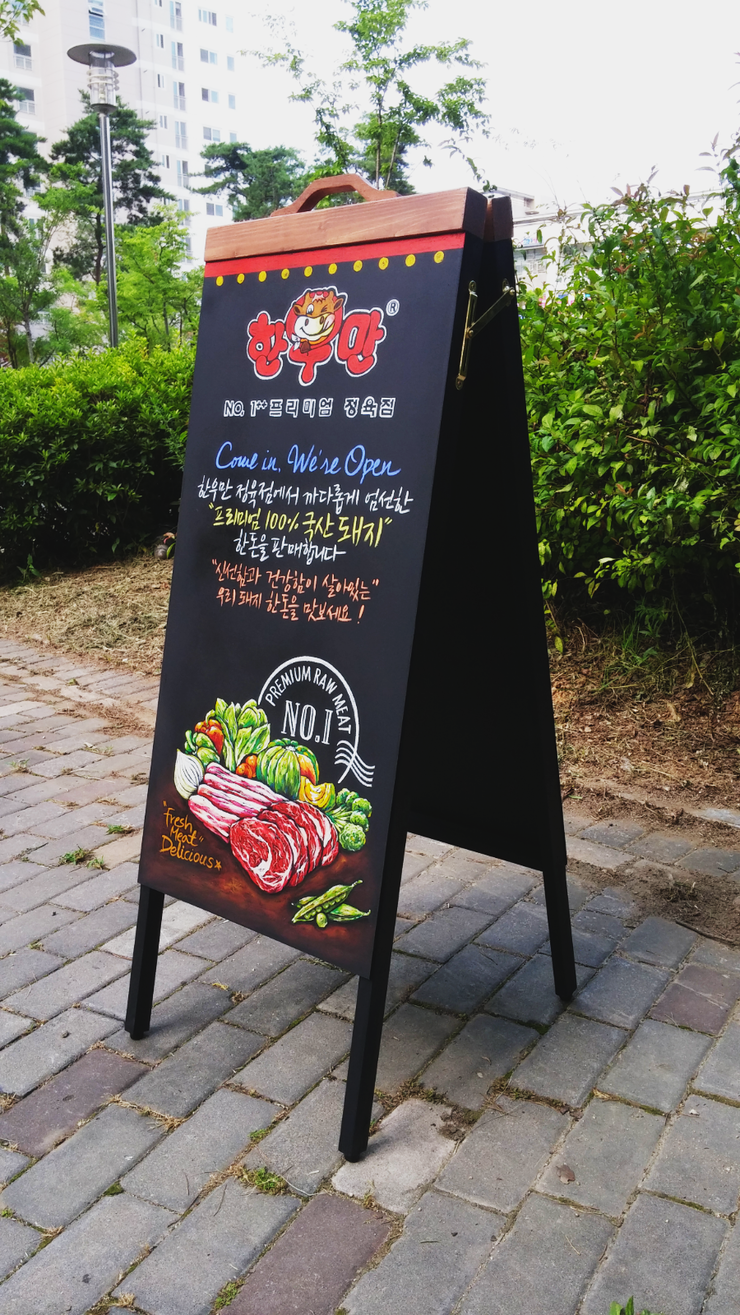 한우만®
NO. 1++프리미엄 정육점
Come in, We're Open
한우만 정육점에서 까다롭게 엄선한
"프리미엄 100% 국산 돼지"
한돈을 판매합니다
"신선함과 건강함이 살아있는"
우리 돼지 한돈을 맛보세요!
PREMIUM RAW MEAT
NO.1
"Fresh
Meat"
Delicious